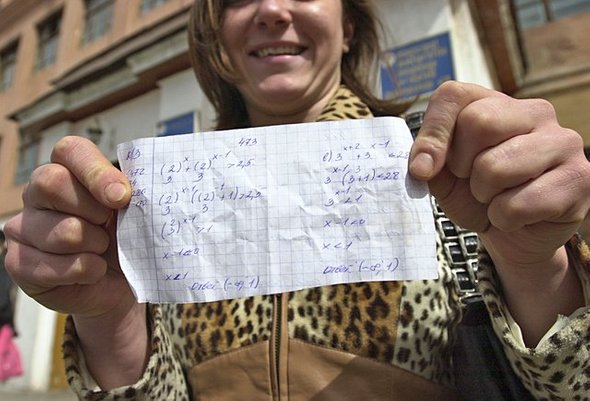 473
(2/3)^x + (2/3)^(x-1) > 2,5
(2/3)^(x-1) ((2/3)^1 + 1) > 2,5
(2/3)^(x-1) > 1
x-1<0
x<1
Ответ (-∞; 1)
в) 3^(x+2) + 3^(x-1) < 28
3^(x-1) (3^3 + 1) < 28
3^(x-1) < 1
x-1<0
x<1
Ответ (-∞; 1)